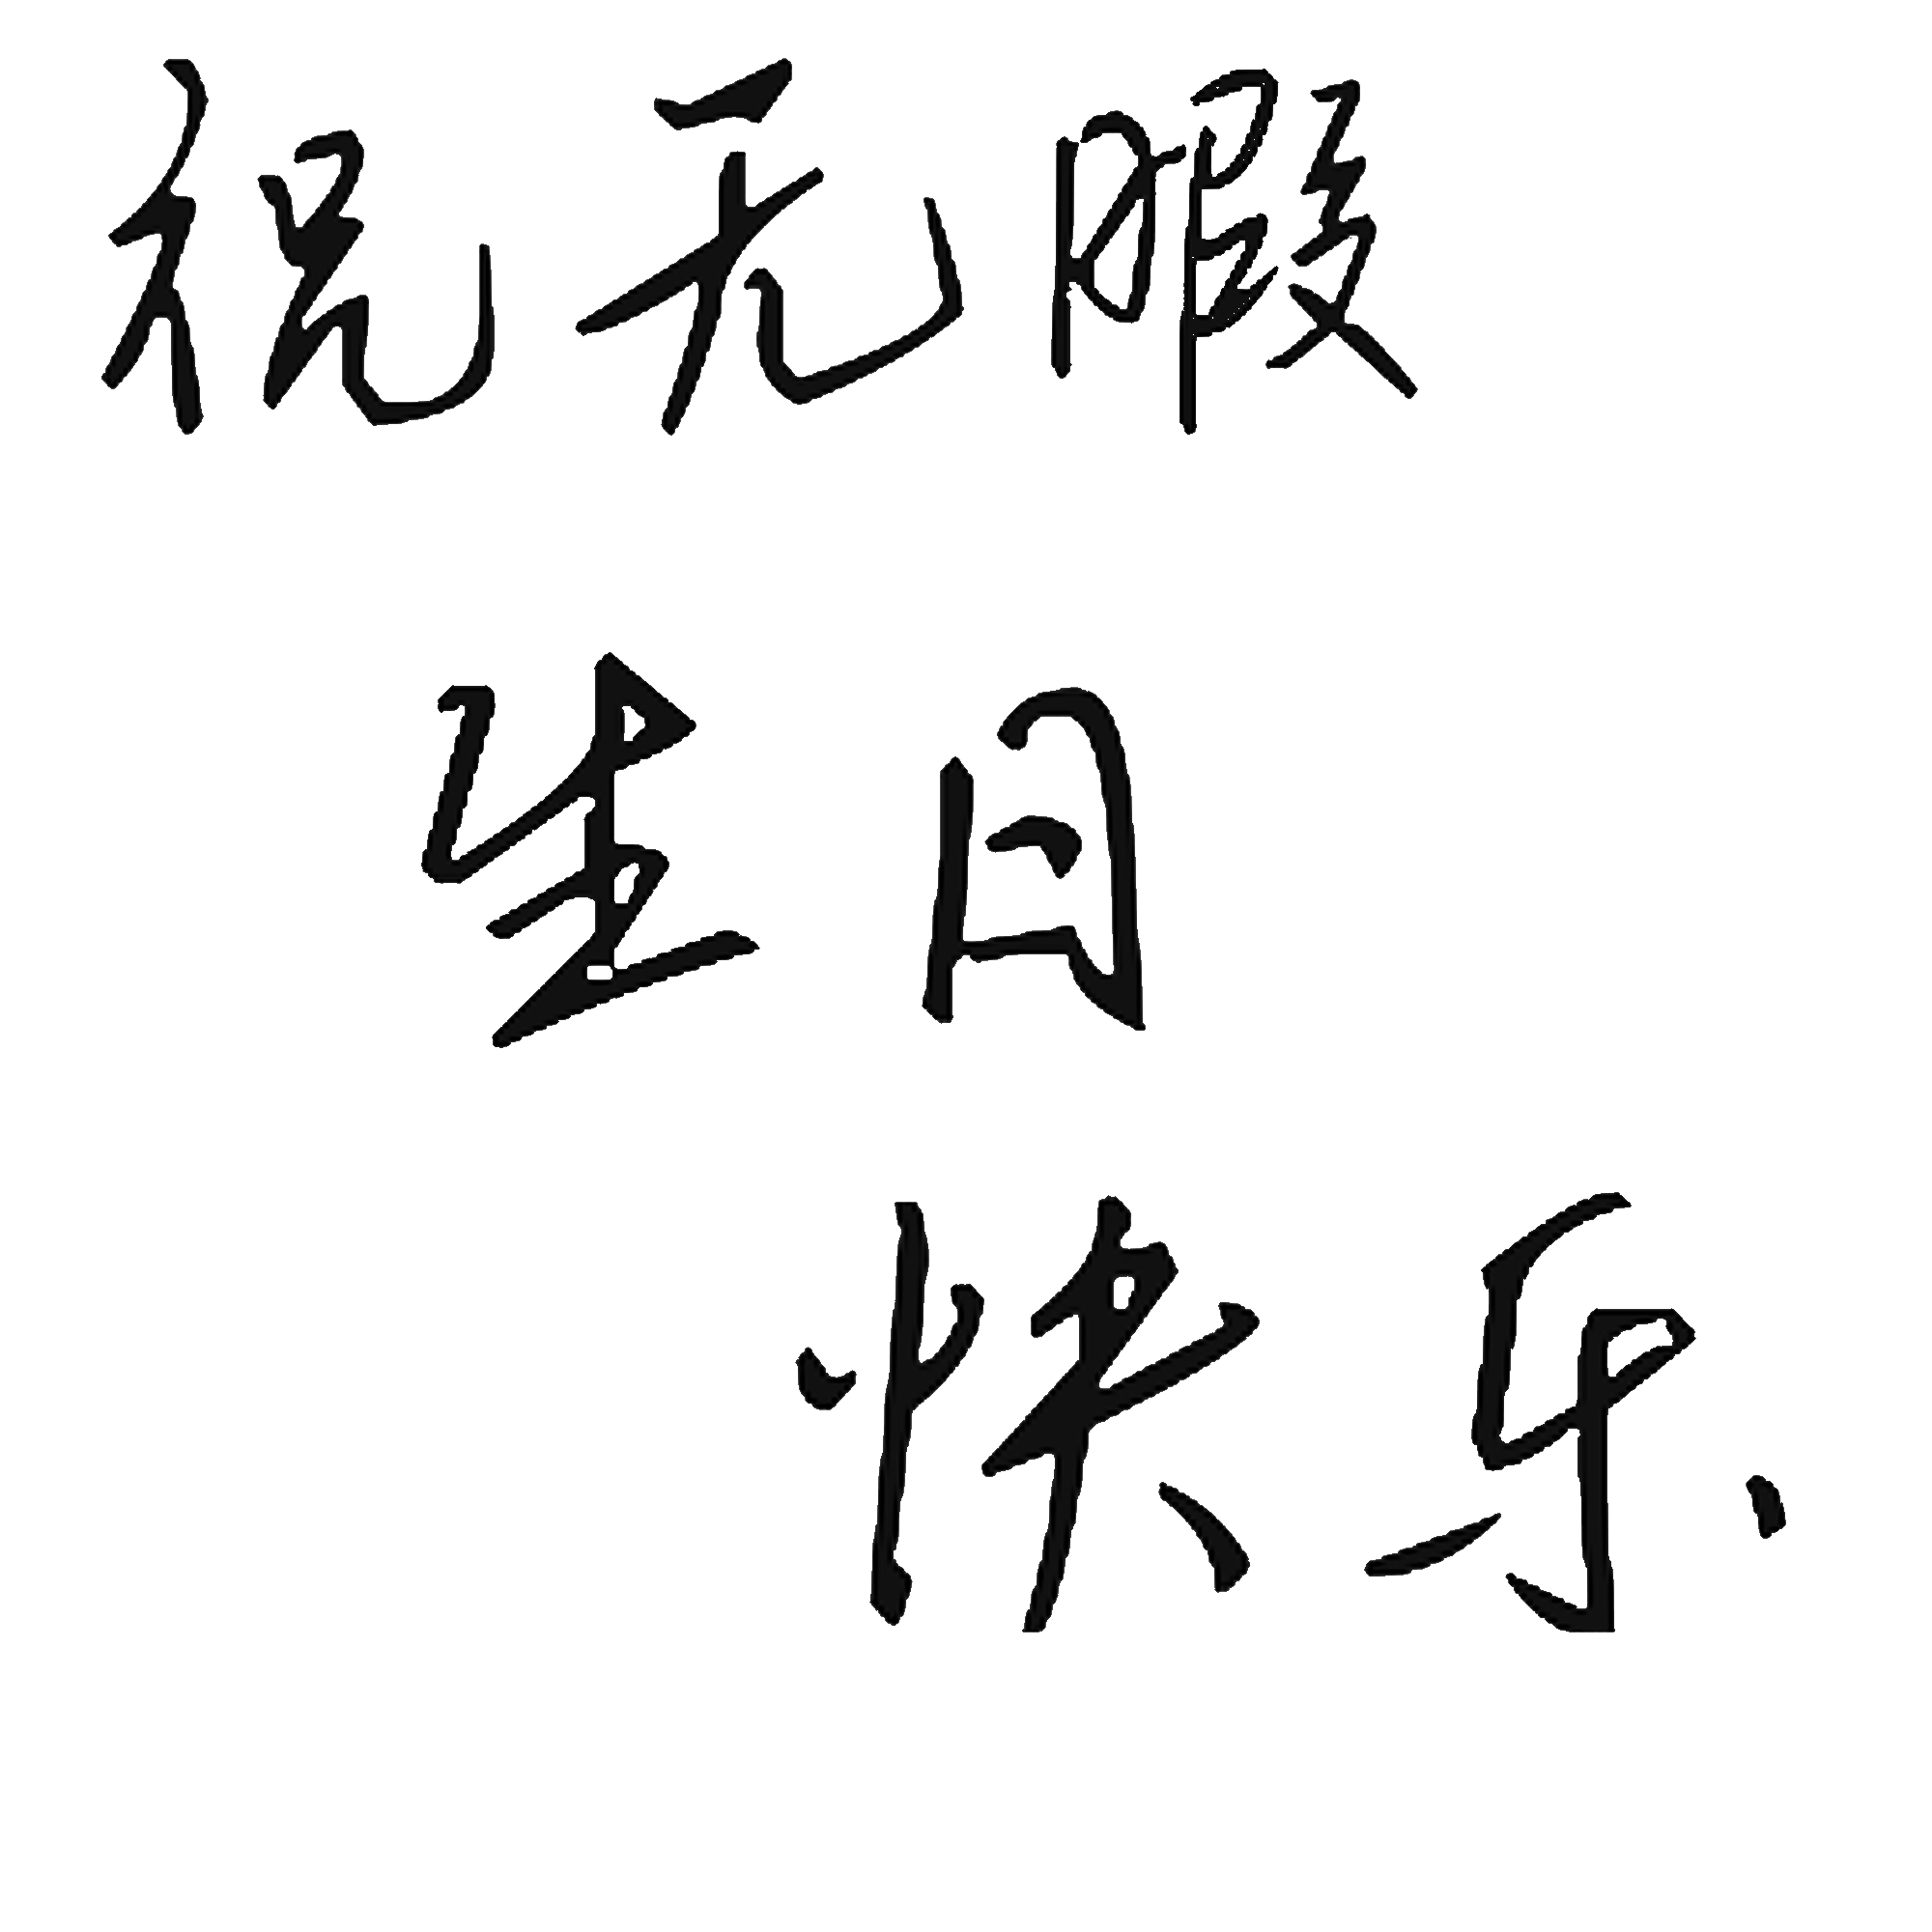 祝无暇
生日
快乐